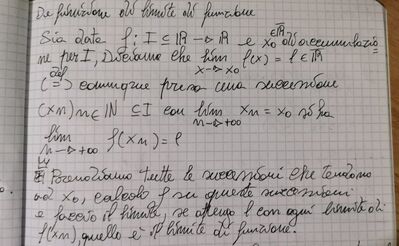 Definizione di limite di funzione
Sia data f: I ⊆ ℝ → ℝ e x₀ ∈ ℝ̄ di accumulazio
ne per I, Diciamo che lim x→x₀ f(x) = l ∈ ℝ̄
(def ⟺) comunque presa una successione
(xn)n∈ℕ ⊆ I con lim n→+∞ xn = x₀ si ha
lim n→+∞ f(xn) = l
Prendiamo tutte le successioni che tendono
ad x₀, calcolo f su queste successioni
e faccio il limite, se ottengo l con ogni limite di
f(xn), quello è il limite di funzione.